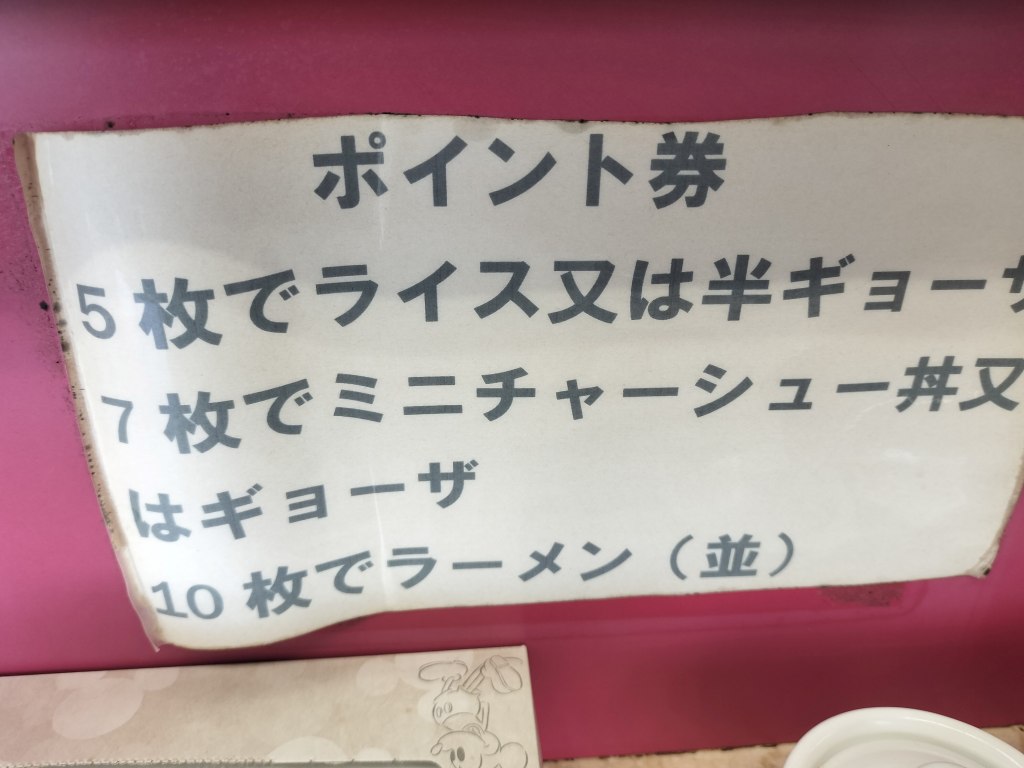 ポイント券
5枚でライス又は半ギョーザ
7枚でミニチャーシュー丼又
はギョーザ
10枚でラーメン（並）